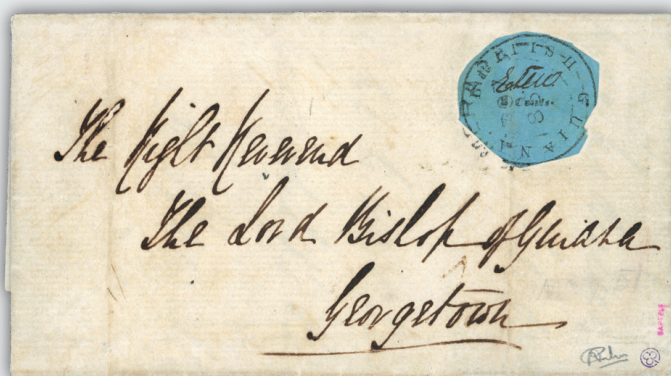 BRITISH
GUIANA.
Cents.
The Right Reverend
The Lord Bishop of Guiana
Georgetown